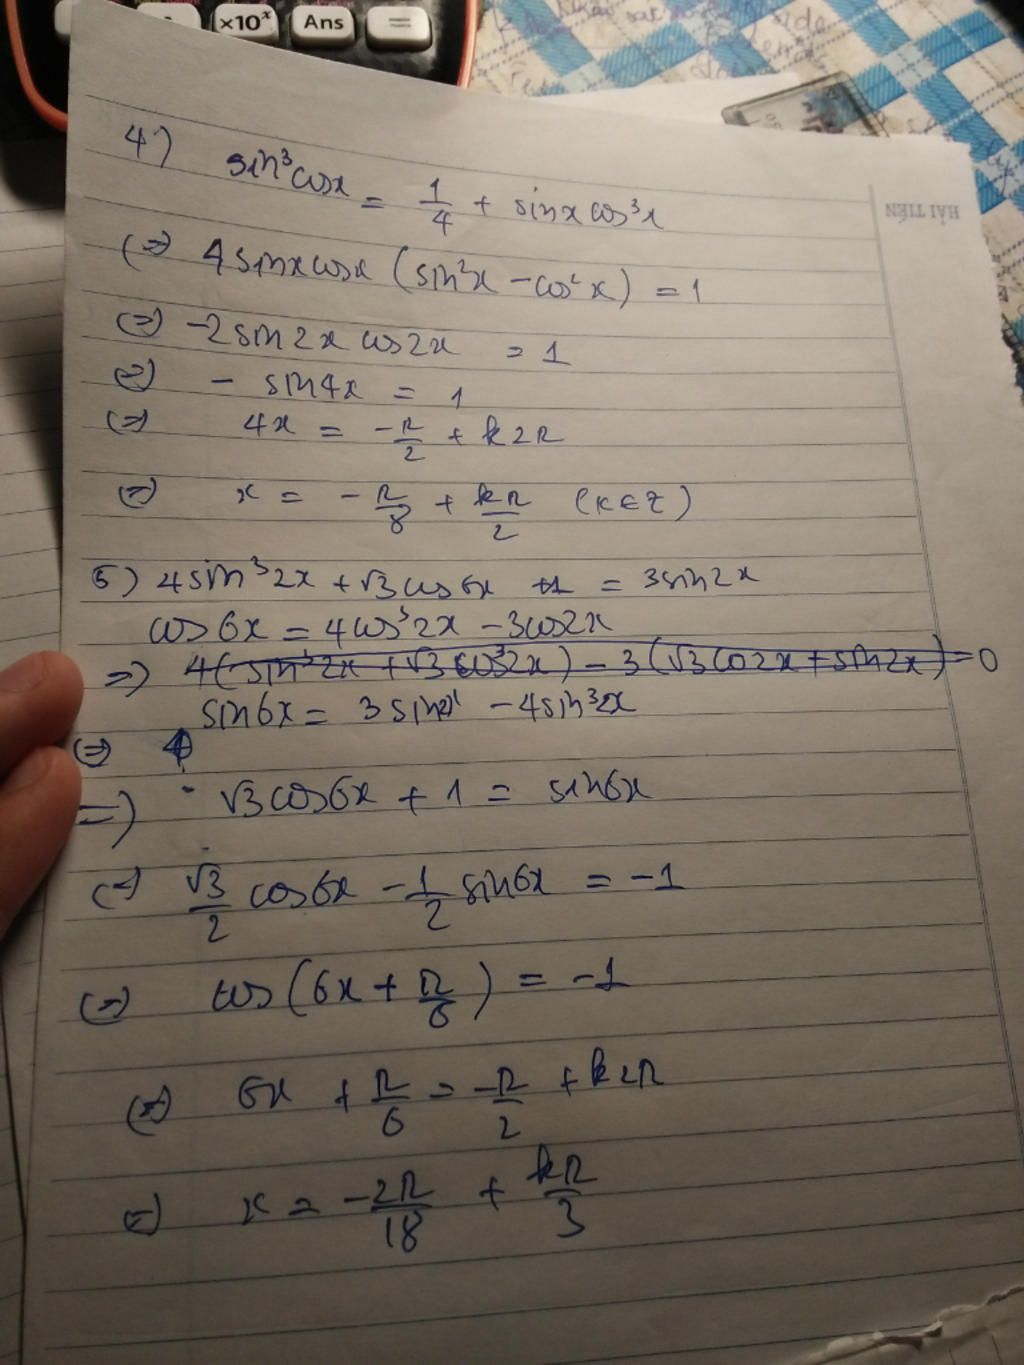 ×10ˣ Ans =
HẢI TIẾN
4) sin³cosx = 1/4 + sinx cos³x
(=) 4sinxcosx (sin²x - cos²x) = 1
(=) -2sin2x cos2x = 1
(=) - sin4x = 1
(=) 4x = -π/2 + k2π
(=) x = -π/8 + kπ/2 (k∈Z)
5) 4sin³2x + √3cos6x +1 = 3sin2x
cos6x = 4cos³2x - 3cos2x
=) 4(sin³2x + √3cos³2x) - 3(√3cos2x + sin2x) = 0
sin6x = 3sin2x - 4sin³2x
(=) 4
=) √3cos6x + 1 = sin6x
(=) √3/2 cos6x - 1/2 sin6x = -1
(=) cos(6x + π/6) = -1
(=) 6x + π/6 = -π/2 + k2π
(=) x = -2π/18 + kπ/3